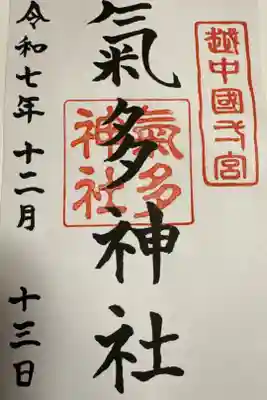 越中國弌宮
氣多神社
氣多
神社
令和七年十二月十三日